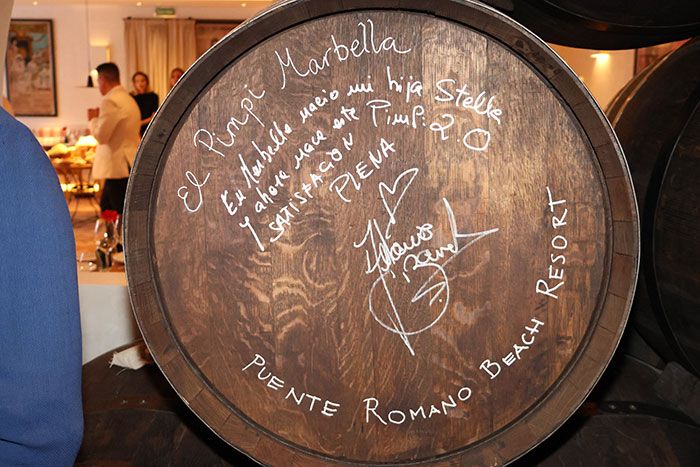 El Pimpi Marbella
En Marbella nacio mi hija Stella
y ahora nace este Pimpi 2.0
SATISFACION PLENA
PUENTE ROMANO BEACH RESORT